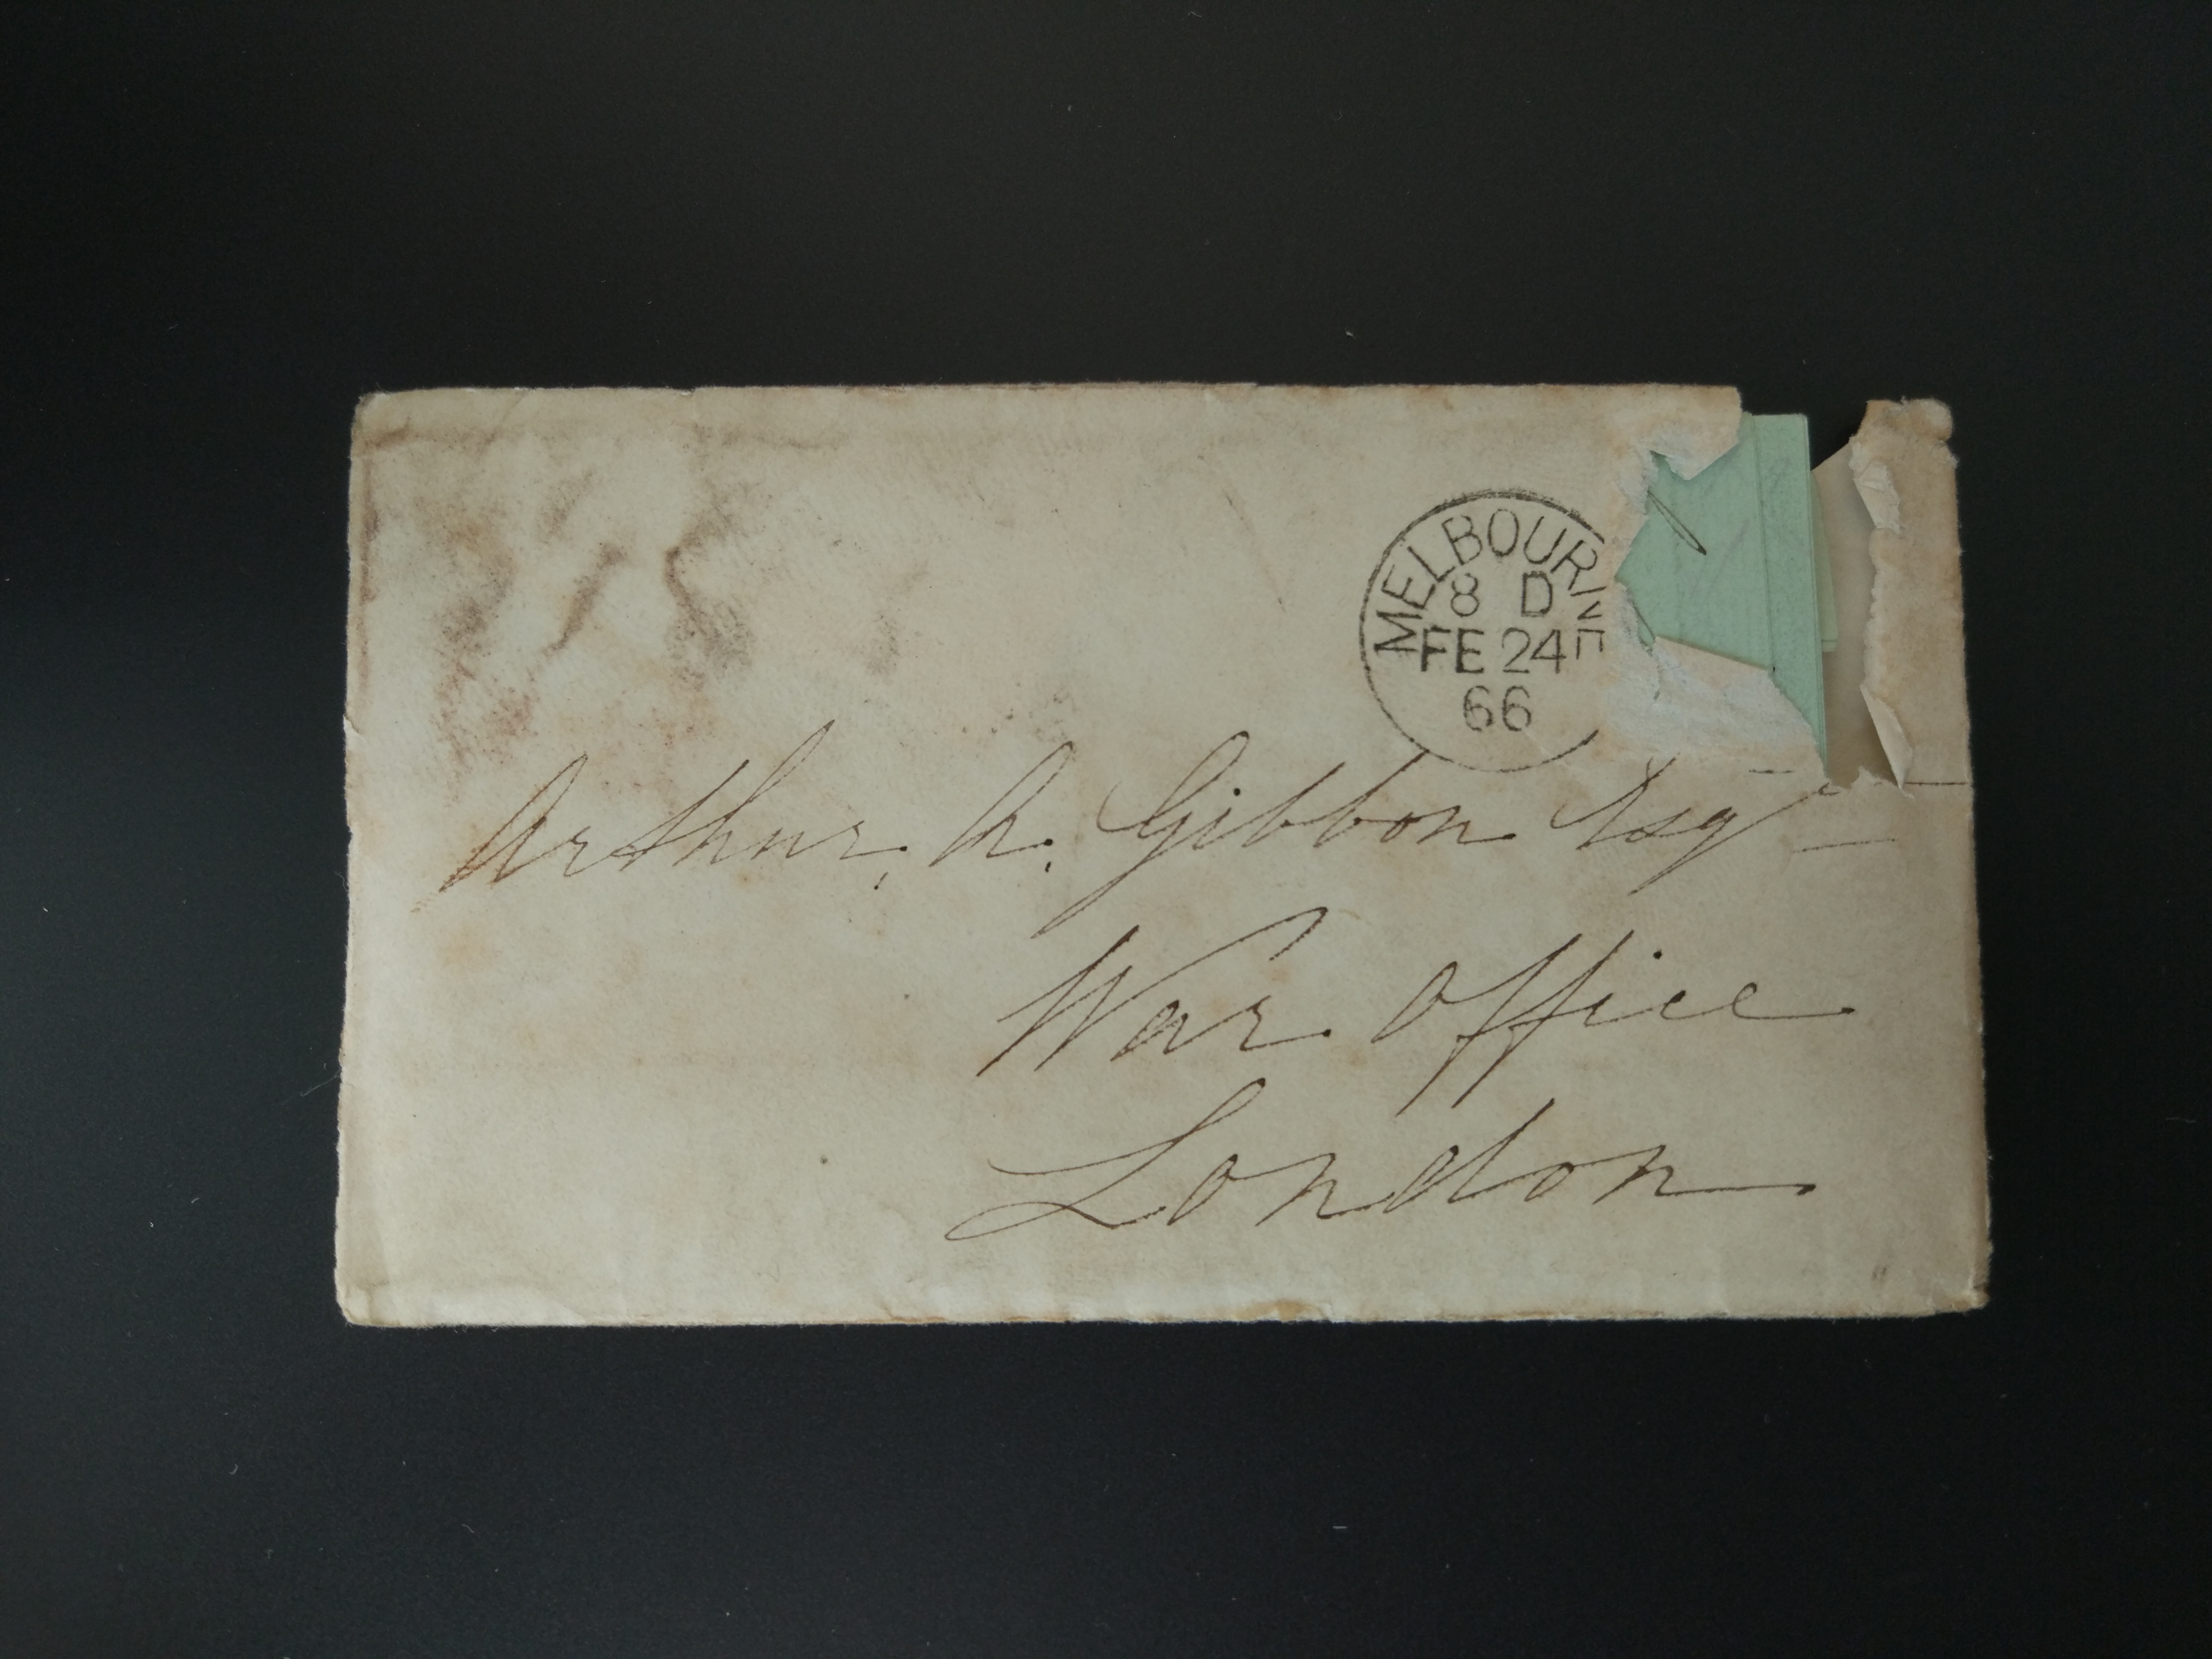 MELBOURNE
8 D
FE 24
66
Arthur. A. Gibbon Esqr
War Office
London